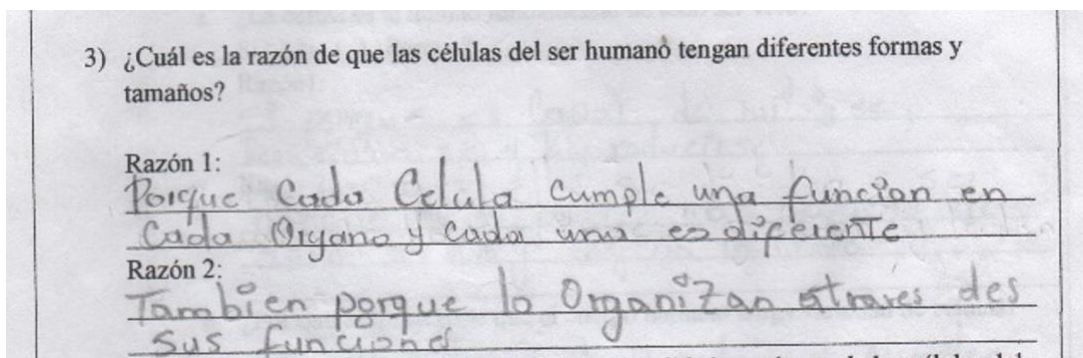 3) ¿Cuál es la razón de que las células del ser humano tengan diferentes formas y
tamaños?
Razón 1:
Porque Cada Celula Cumple una funcion en
Cada Organo y cada una es diferente
Razón 2:
Tambien porque lo Organizan atraves des
Sus funciond